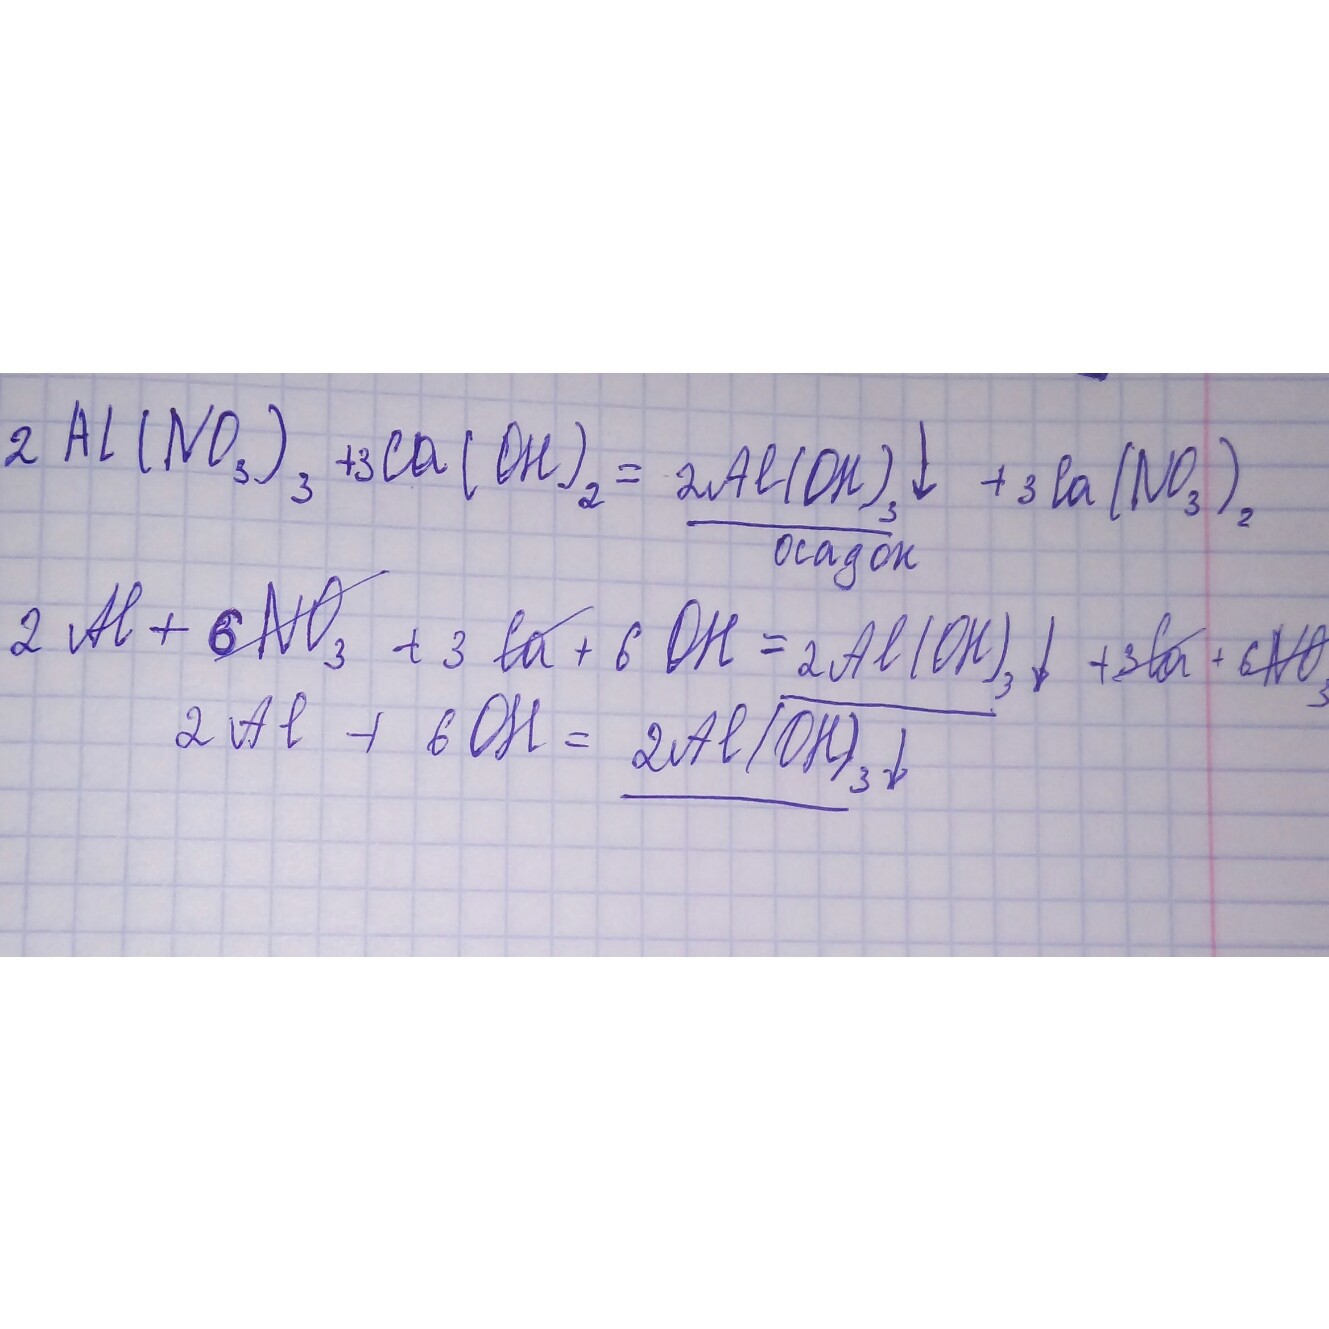 2 Al(NO₃)₃ +3Ca(OH)₂ = 2Al(OH)₃↓ + 3Ca(NO₃)₂
осадок
2 Al + 6NO₃ + 3 Ca + 6 OH = 2Al(OH)₃↓ +3Ca + 6NO₃
2Al + 6OH = 2Al(OH)₃↓